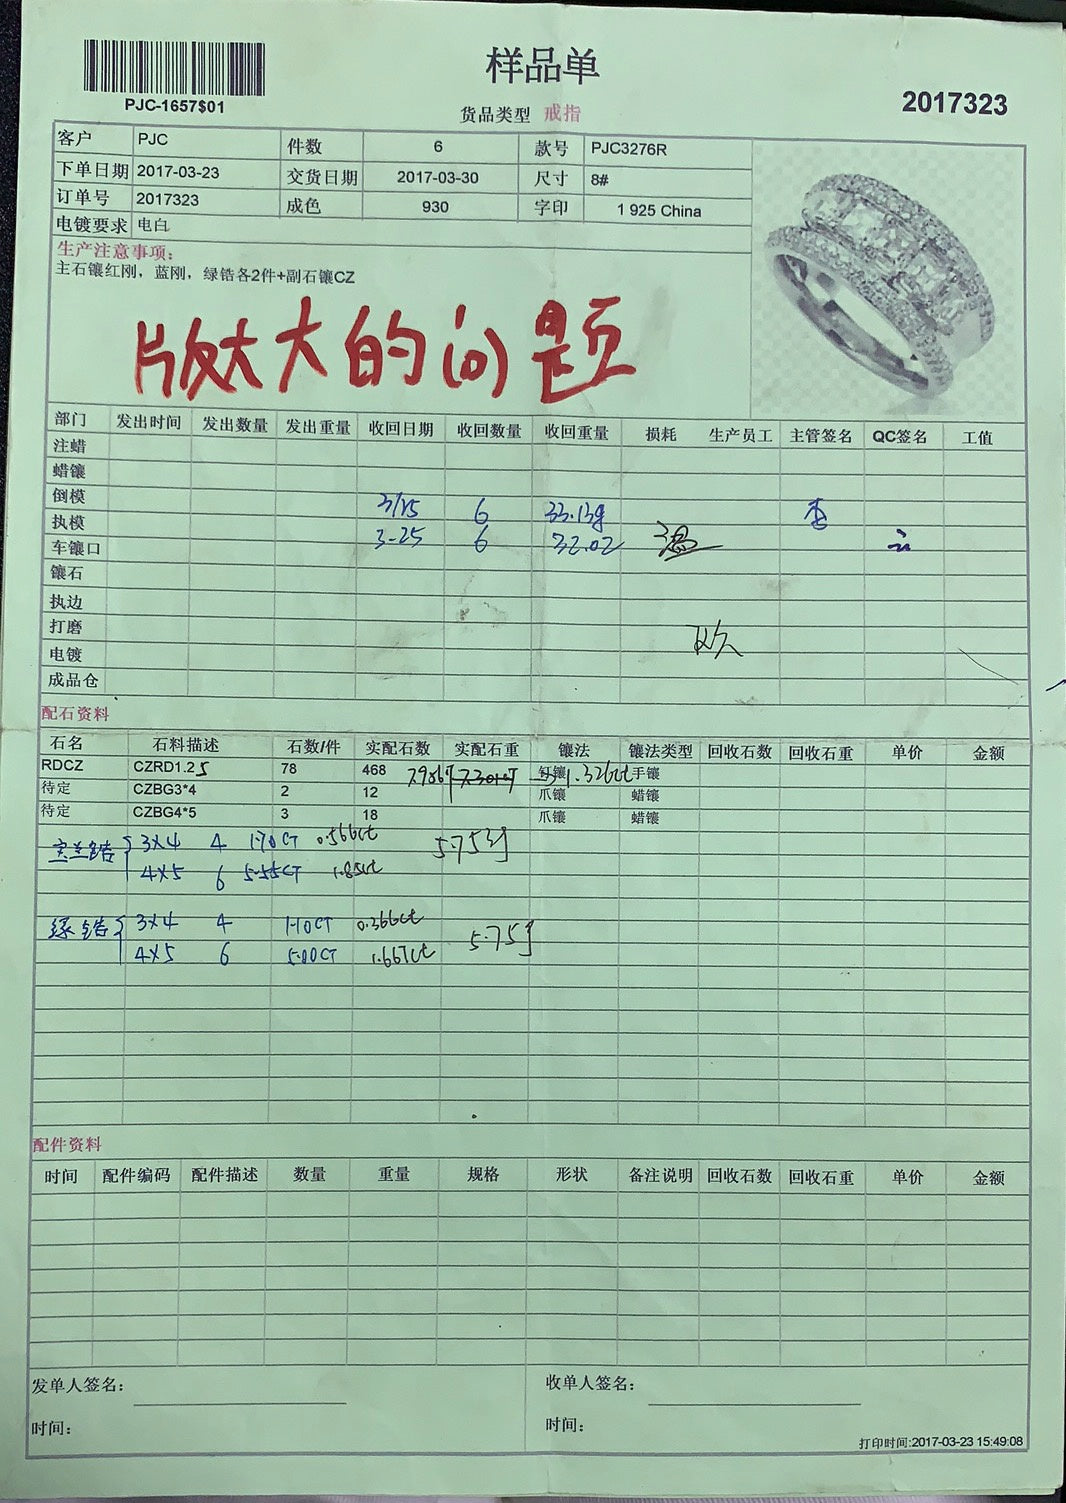 样品单
PJC-1657$01
货品类型 戒指
2017323
客户 PJC 件数 6 款号 PJC3276R
下单日期 2017-03-23 交货日期 2017-03-30 尺寸 8#
订单号 2017323 成色 930 字印 1 925 China
电镀要求 电白
生产注意事项:
主石镶红刚，蓝刚，绿锆各2件+副石镶CZ
版大大的问题
部门 发出时间 发出数量 发出重量 收回日期 收回数量 收回重量 损耗 生产员工 主管签名 QC签名 工值
注蜡
蜡镶
倒模 3/25 6 33.13g
执模
车镶口 3-25 6 32.02
镶石
执边
打磨
电镀
成品仓
配石资料
石名 石料描述 石数/件 实配石数 实配石重 镶法 镶法类型 回收石数 回收石重 单价 金额
RDCZ CZRD1.25 78 468 钉镶 1.326ct 手镶
待定 CZBG3*4 2 12 爪镶 蜡镶
待定 CZBG4*5 3 18 爪镶 蜡镶
3x4 4 1.70CT 0.566ct 5.753g
4x5 6 5.55CT 1.85ct
绿锆 3x4 4 1.10CT 0.366ct 5.75g
4x5 6 5.00CT 1.667ct
配件资料
时间 配件编码 配件描述 数量 重量 规格 形状 备注说明 回收石数 回收石重 单价 金额
发单人签名: 收单人签名:
时间: 时间:
打印时间:2017-03-23 15:49:08